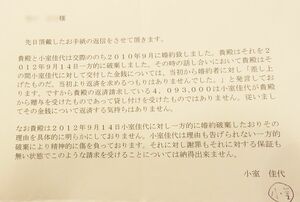 様
先日頂戴したお手紙の返信をさせて頂きます。
貴殿と小室佳代は交際ののち2010年9月に婚約致しました。貴殿はそれを2
012年9月14日一方的に破棄しました。その時の話し合いにおいて貴殿はそ
の間小室佳代に対して交付した金銭については、当初から婚約者に対し「差し上
げたものだ。当初より返済を求めるつもりはありませんでした。」と発言しており
ます。ですから貴殿からの返済請求している4,093,000は小室佳代が貴殿
から贈与を受けたものであって貸し付けを受けたものではありません。従いまし
てその金銭について返済する気持ちはありません。
なお貴殿は2012年9月14日小室佳代に対し一方的に婚約破棄したおりその
理由を具体的に明らかにしておりません。小室佳代は理由も告げられない一方的な
破棄により精神的に傷を負っております。それに対し謝罪もそれに対する保証も
無い状態でこのような請求を受けることについては納得出来ません。
小室 佳代